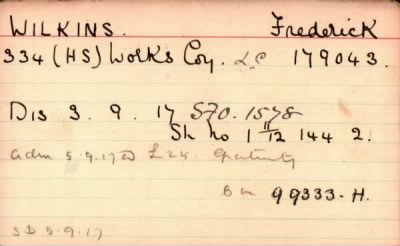 WILKINS. Frederick
334 (HS) Works Coy. L.C 179043.
Dis 3. 9. 17 S70. 1578
Sh no 1 11/12 144 2.
adm 5.9.17 @ £24. Gratuity
99333-H.
SD 5.9.17.